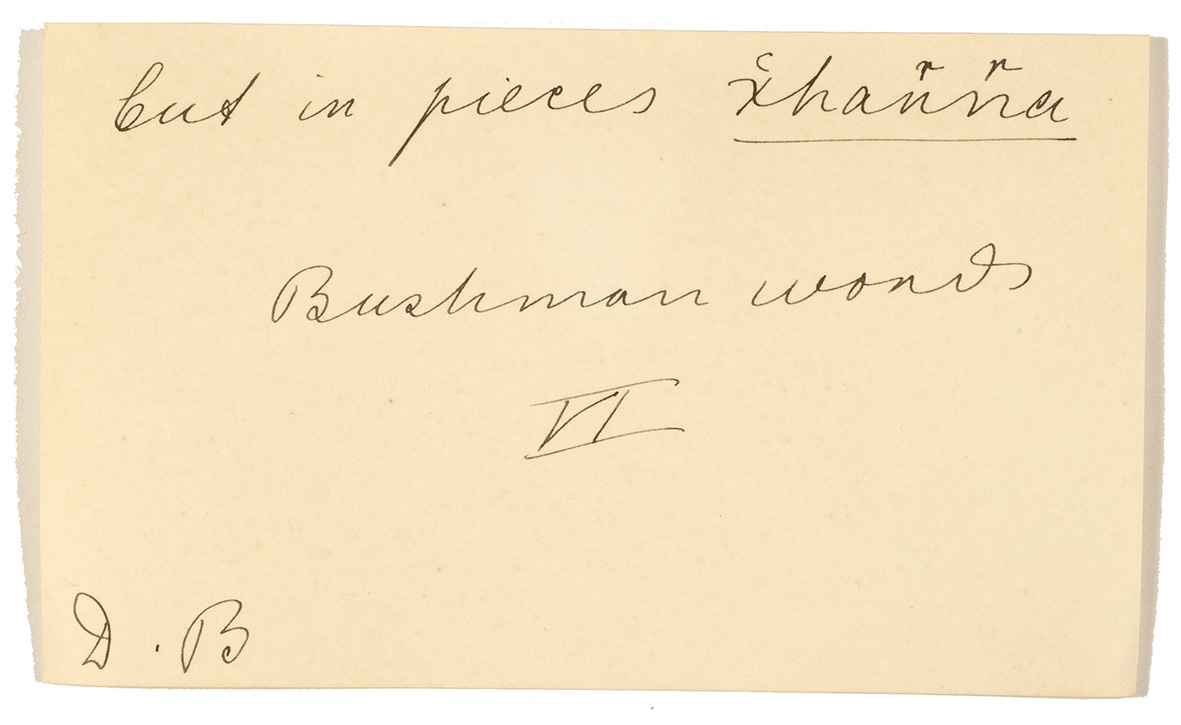 Cut in pieces x̆han̆n̆a
Bushman words
VI
D. B